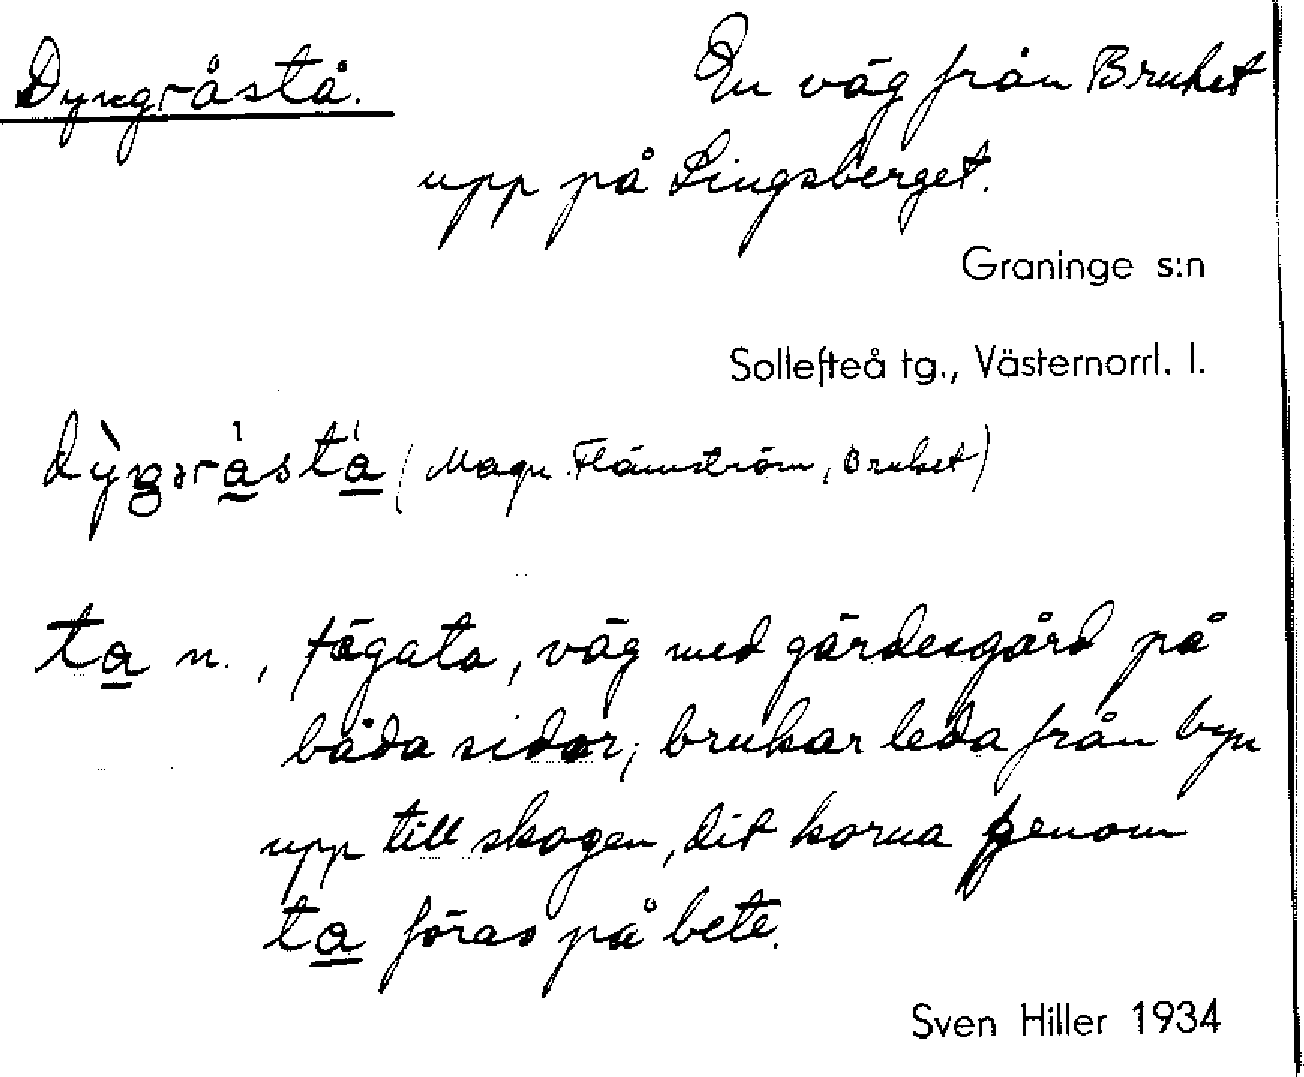 Dyngråstå. En väg från Bruket
upp på Lingsberget.
Graninge s:n
Sollefteå tg., Västernorrl. l.
(Magn. Flämström, Bruket)
ta n., fägata, väg med gärdesgård på
båda sidor; brukar leda från byn
upp till skogen, dit korna genom
ta föras på bete.
Sven Hiller 1934